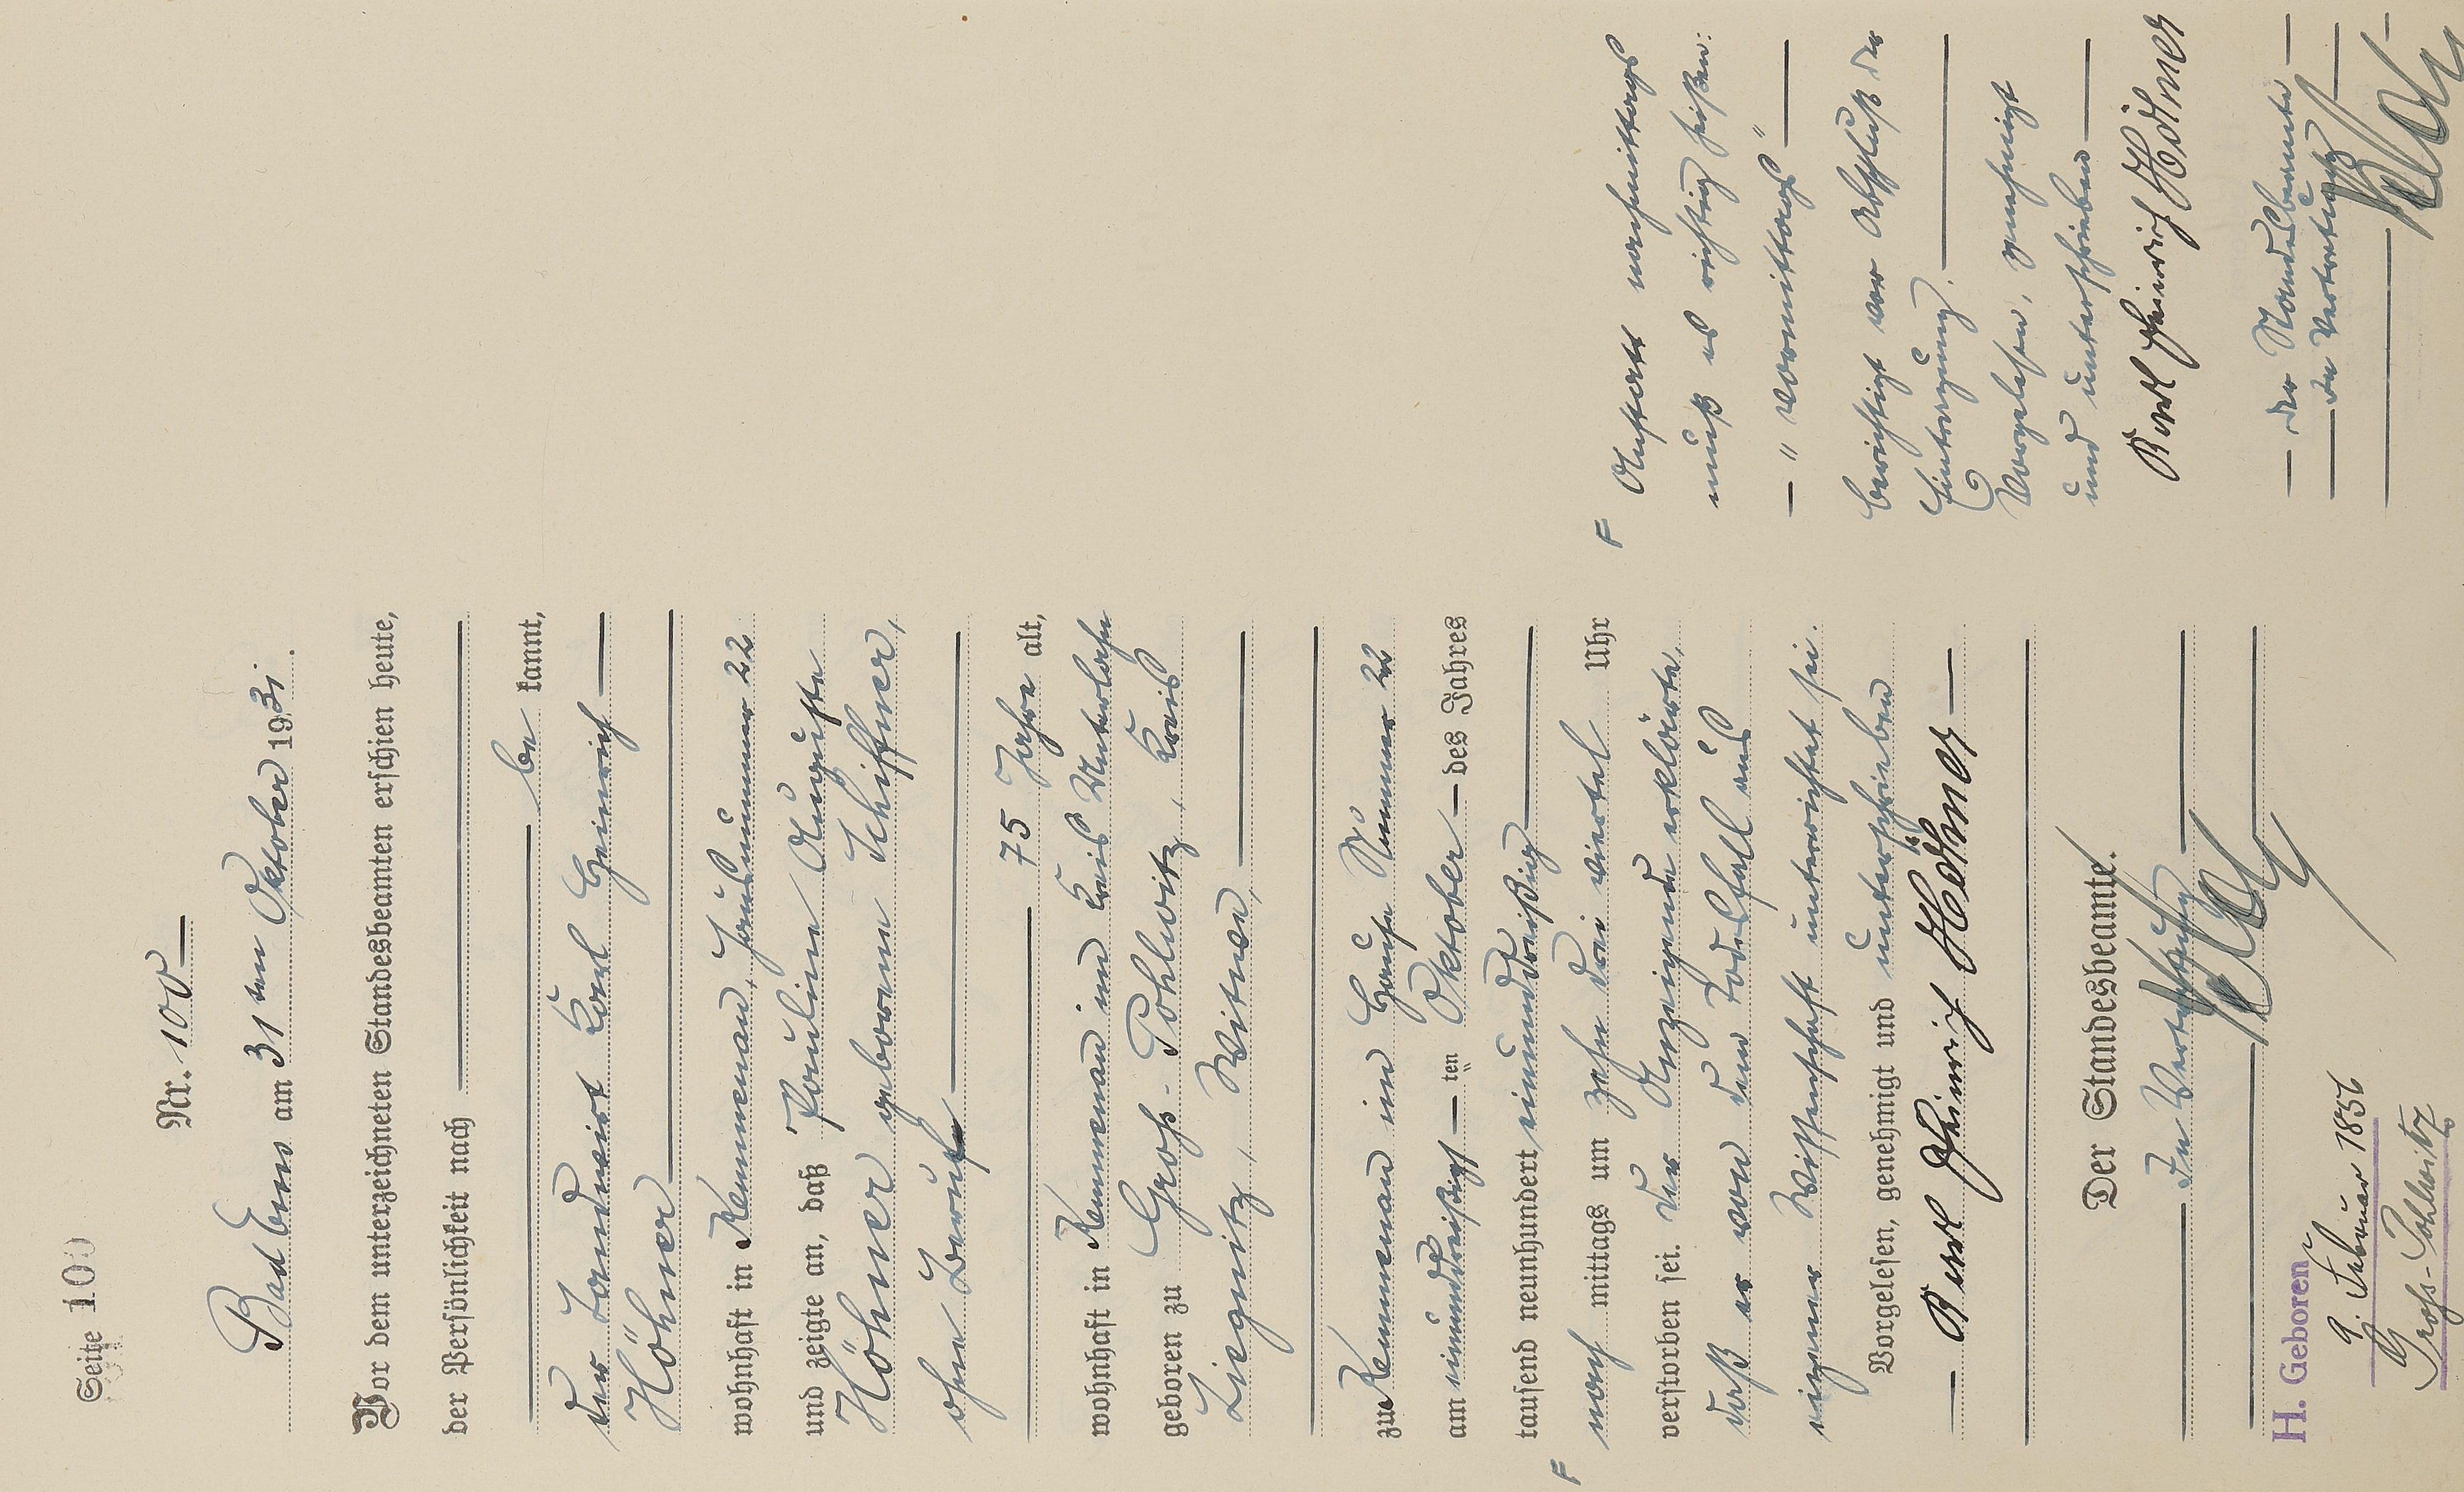 Seite 100
Nr. 100
Bad Ems am 31 ten Oktober 1931.
Vor dem unterzeichneten Standesbeamten erschien heute,
der Persönlichkeit nach
be kannt,
der Landwirt Karl Heinrich
Höhner
wohnhaft in Kemmenau, Hausnummer 22
und zeigte an, daß Pauline Auguste
Höhner geborene Schiffner,
ohne Beruf
75 Jahre alt,
wohnhaft in Kemmenau im Kreis Unterlahn
geboren zu Groß-Pohlwitz, Kreis
Liegnitz, Witwe,
zu Kemmenau im Hause Nummer 22
am einunddreißigsten Oktober des Jahres
tausend neunhundert einunddreißig
F nach mittags um zehn drei viertel Uhr
verstorben sei. Der Anzeigende erklärte,
daß er von dem Todesfall aus
eigener Wissenschaft unterrichtet sei.
Vorgelesen, genehmigt und unterschrieben
Karl Heinrich Höhner
Der Standesbeamte.
In Vertretung
H. Geboren
9. Februar 1856
Gross-Pohlwitz
F Anstatt nachmittags
muß es richtig heißen:
"vormittags"
berichtigt vor Abschluß der
Eintragung.
Vorgelesen, genehmigt
und unterschrieben
Karl Heinrich Höhner
Der Standesbeamte
In Vertretung